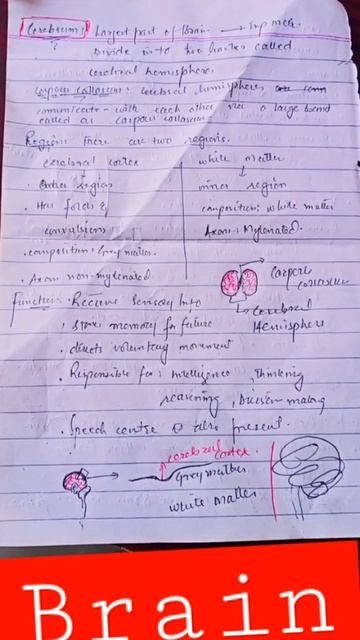 Cerebrum: Largest part of Brain → Imp
Divide in to two halves called
cerebral hemisphere.
Corpus callosum: cerebral hemispheres
communicate with each other via a large band
called as corpus callosum
Regions There are two regions.
cerebral cortex
. Outer region
. Has folds &
. composition: Grey matter.
. Axon non-mylenated
white matter
↓
inner region
composition: white matter
Axon: Mylenated.
Cerebral
Hemisphere
Function: . Receive Sensory Info
. store memory for future
. directs voluntary movement
. Responsible for: Intelligence, Thinking
reasoning, Decision making
. Speech centre is also present.
cerebral cortex
Grey matter
white matter
Brain